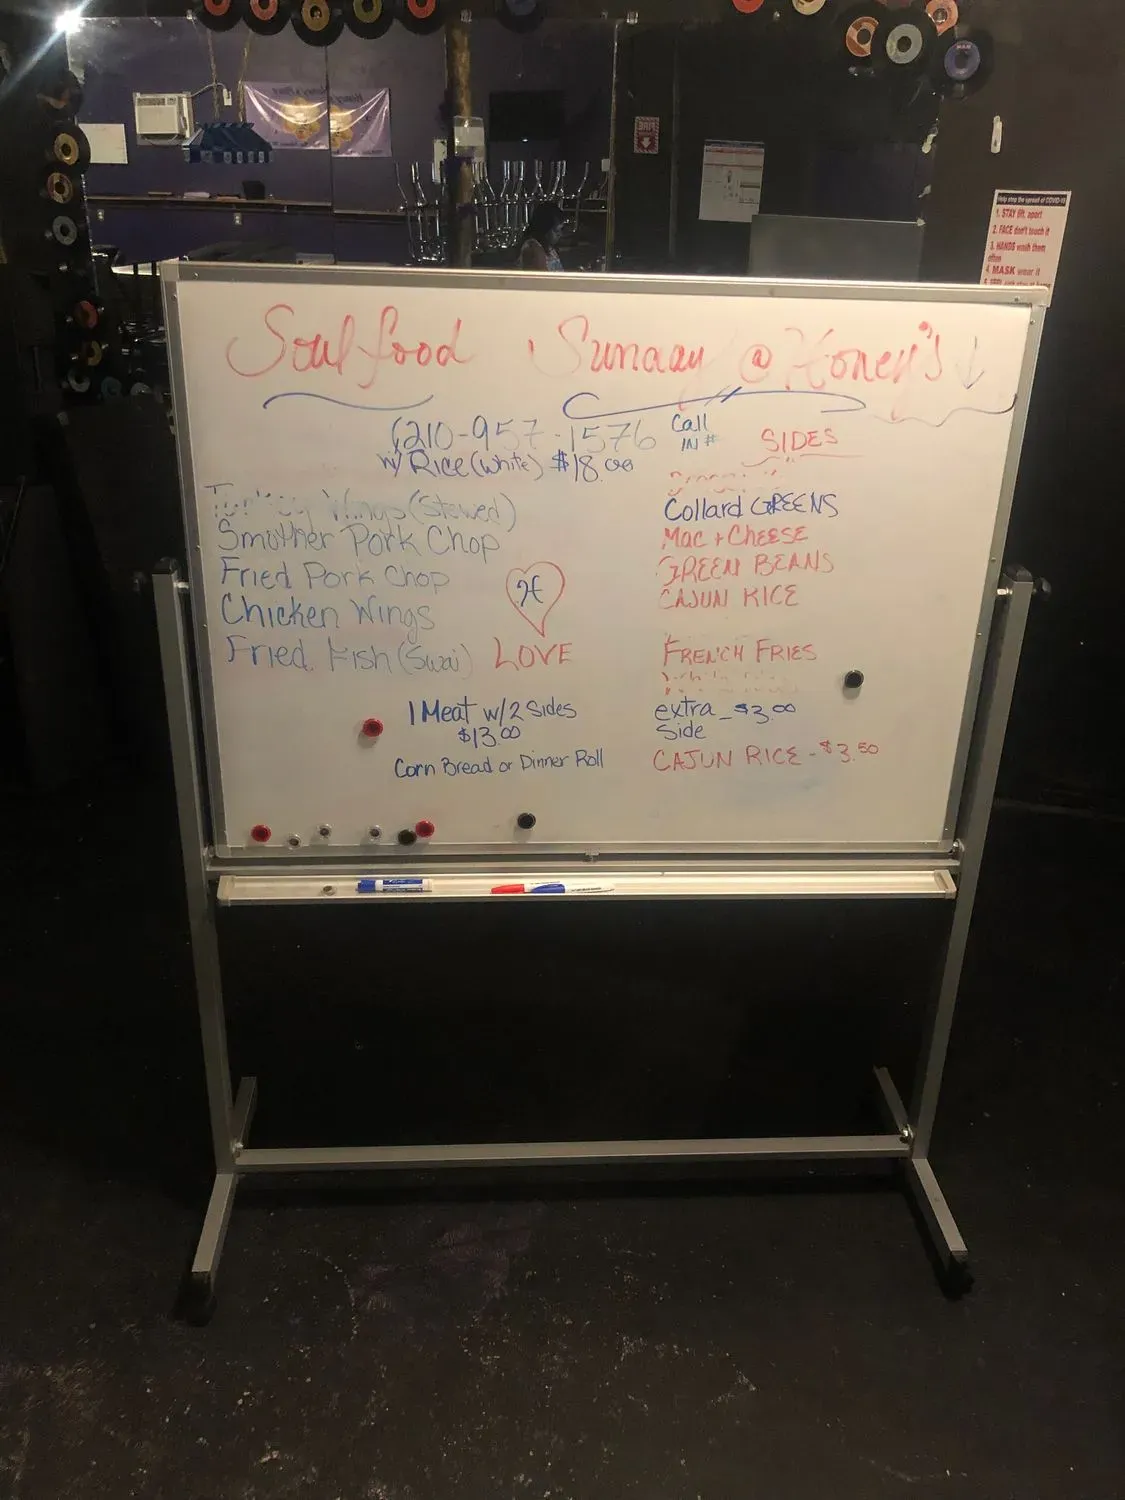 Soul food Sunday @ Honey's ↓
(210-957-1576 Call IN #
w/ Rice (white) $18.00
Turkey Wings (Stewed)
Smother Pork Chop
Fried Pork Chop
Chicken Wings
Fried Fish (Swai)
H
LOVE
1 Meat w/2 Sides
$13.00
Corn Bread or Dinner Roll
SIDES
Collard GREENS
Mac + CHEESE
GREEN BEANS
CAJUN RICE
FRENCH FRIES
extra - $3.00
Side
CAJUN RICE - $3.50
Help stop the spread of COVID-19
1. STAY 6ft. apart
2. FACE don't touch it
3. HANDS wash them
often
4. MASK wear it
FIRE